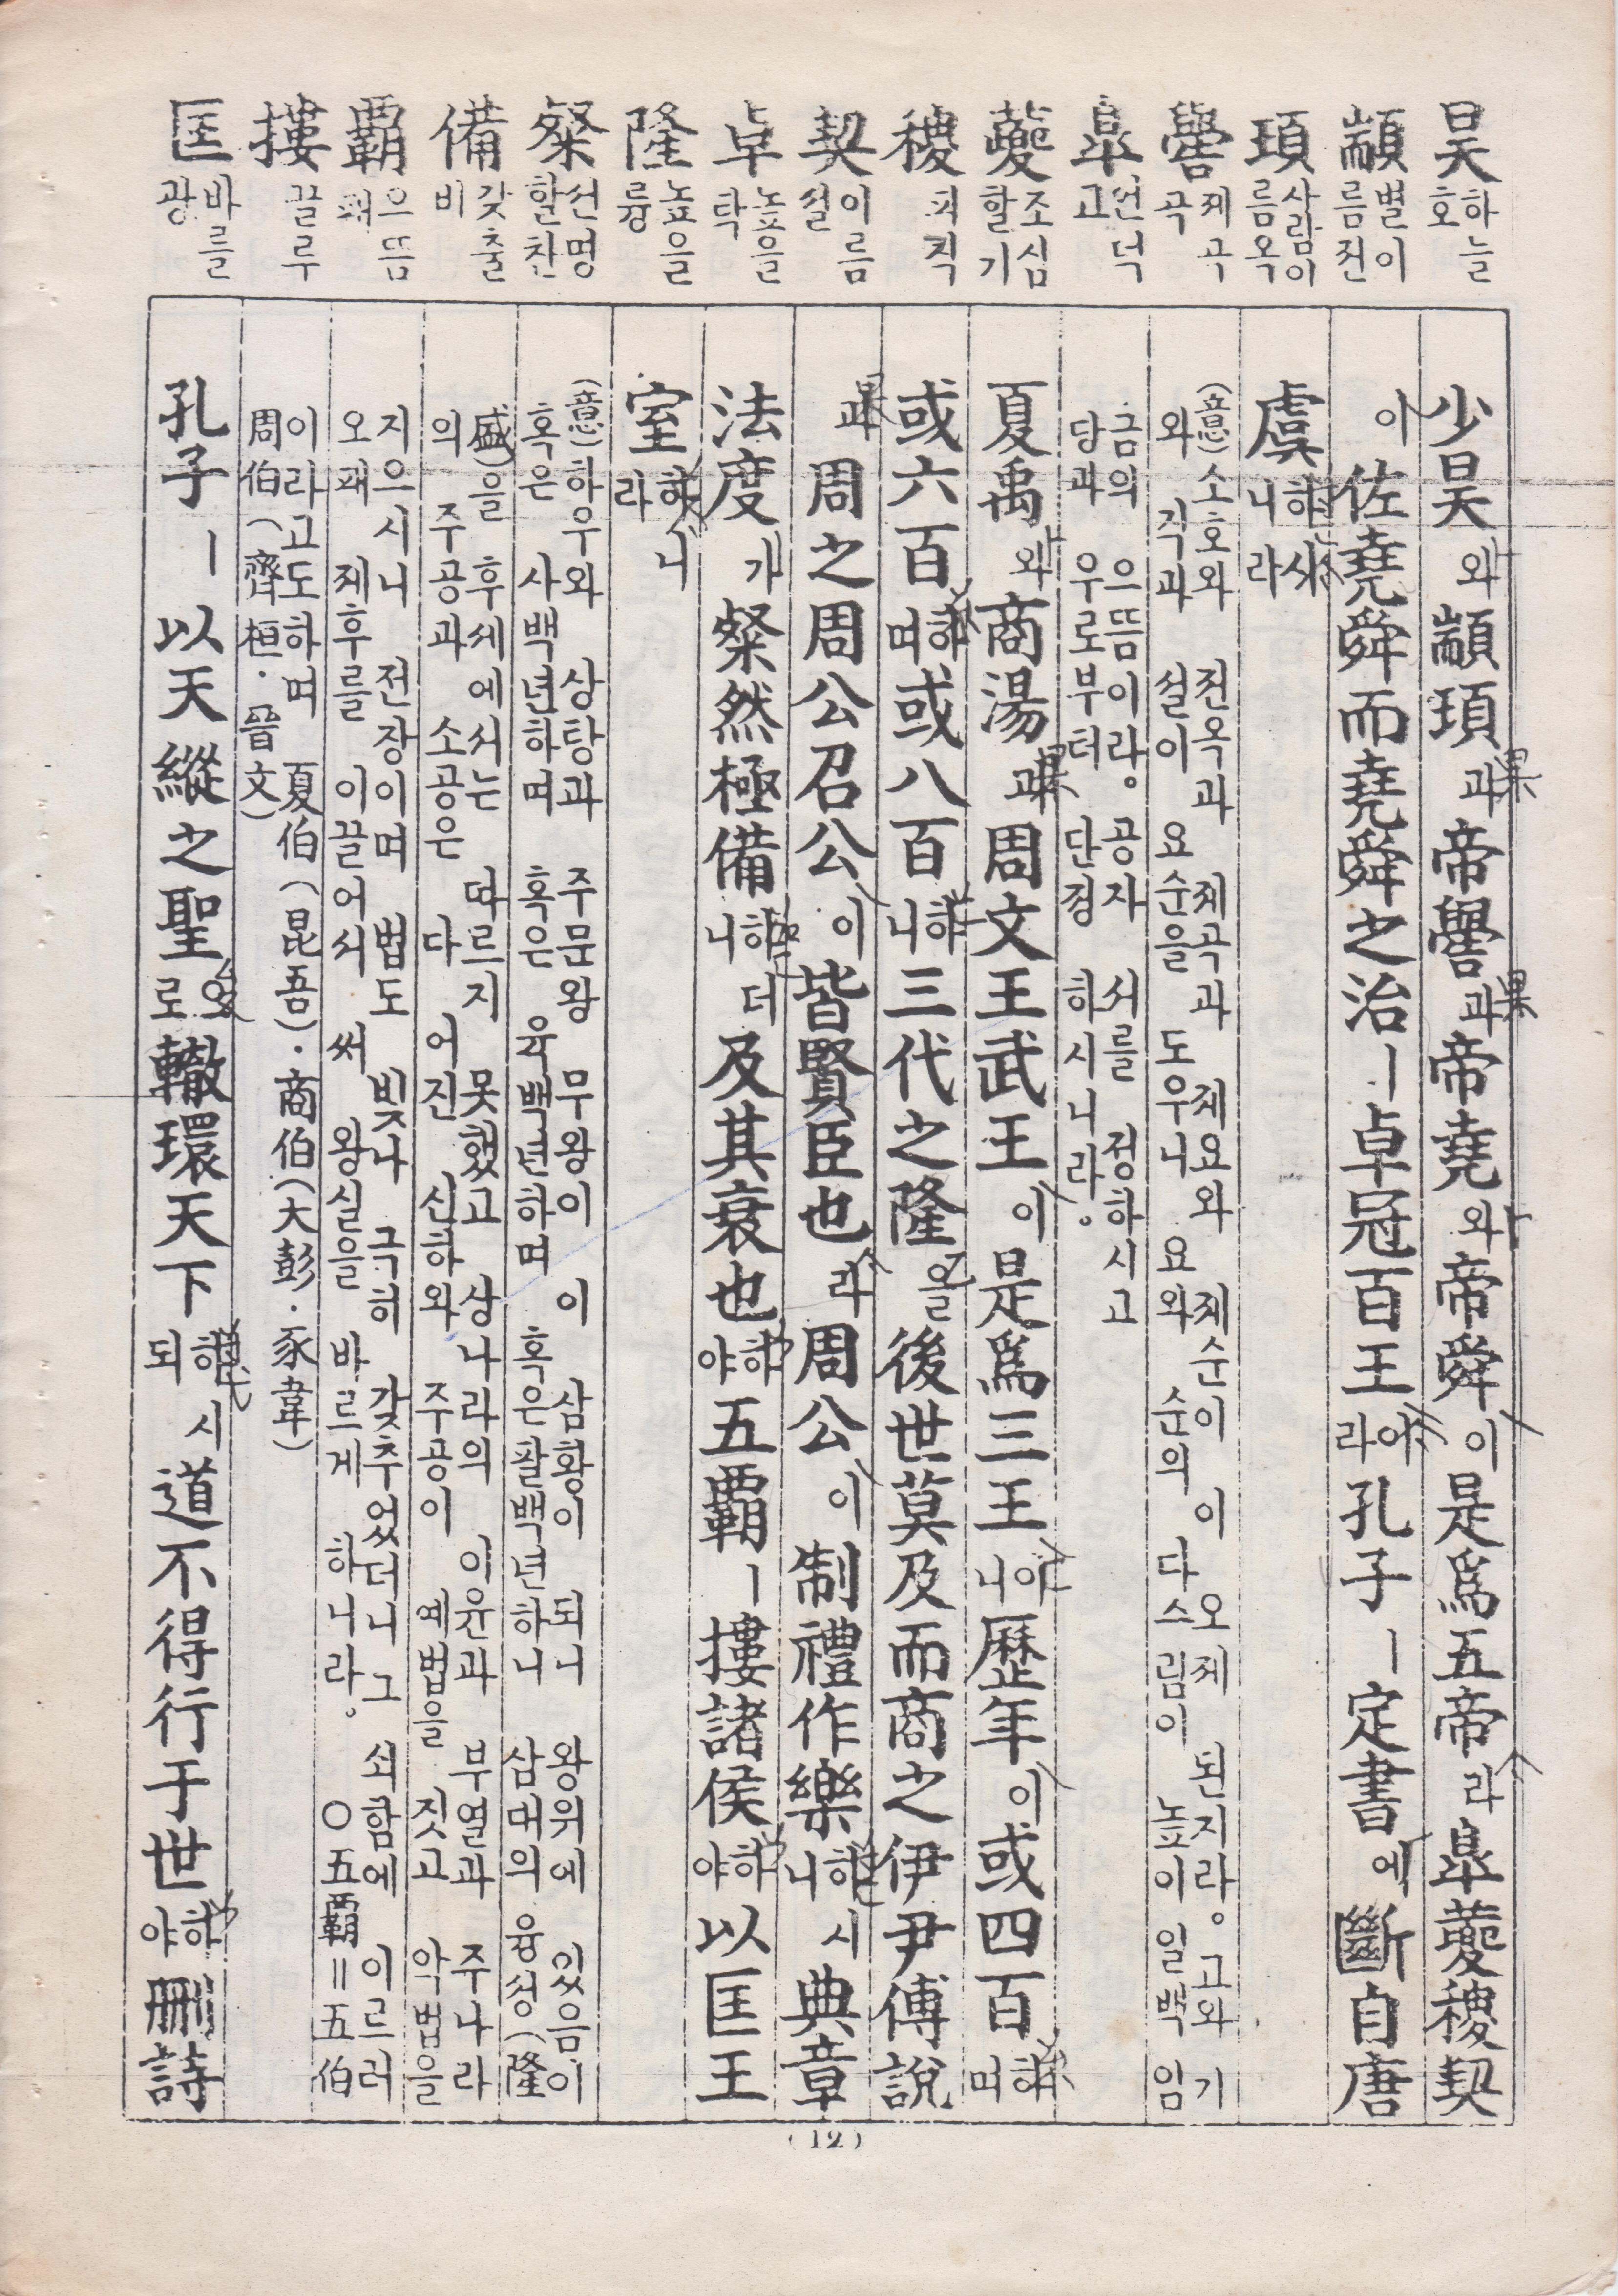 昊 하늘 호
顓 별이름 전
頊 사람이름 옥
嚳 제곡 곡
皐 언덕 고
夔 조심할 기
稷 피 직
契 이름 설
卓 높을 탁
隆 높을 륭
粲 선명할 찬
備 갖출 비
覇 으뜸 패
摟 끌 루
匡 바를 광
少昊와 顓頊과 帝嚳과 帝堯와 帝舜이 是爲五帝라 皐夔稷契
이 佐堯舜而堯舜之治ㅣ 卓冠百王이라 孔子ㅣ 定書에 斷自唐
虞하시니라
(意)소호와 전옥과 제곡과 제요와 제순이 이 오제 된지라。고와 기
와 직과 설이 요순을 도우니 요와 순의 다스림이 높이 일백 임
금의 으뜸이라。공자 서를 정하시고
당과 우로부터 단정 하시니라。
夏禹와 商湯과 周文王武王이 是爲三王이니 歷年이 或四百하며
或六百하며 或八百하니 三代之隆을 後世莫及而商之伊尹傅說
과 周之周公召公이 皆賢臣也라 周公이 制禮作樂하시니 典章
法度가 粲然極備하더니 及其衰也하야 五覇ㅣ 摟諸侯하야 以匡王
室하니라
(意)하우와 상탕과 주문왕 무왕이 이 삼왕이 되니 왕위에 있음이
혹은 사백년하며 혹은 육백년하며 혹은 팔백년하니 삼대의 융성(隆
盛)을 후세에서는 따르지 못했고 상나라의 이윤과 부열과 주나라
의 주공과 소공은 다 어진 신하와 주공이 예법을 짓고 악법을
지으시니 전장이며 법도 빛나 극히 갖추었더니 그 쇠함에 이르러
오패 제후를 이끌어서 써 왕실을 바르게 하니라。 ○五覇=五伯
이라고도하며 夏伯(昆吾)·商伯(大彭·豕韋)
周伯(齊桓·晉文)
孔子ㅣ 以天縱之聖으로 轍環天下하시되 道不得行于世하야 刪詩
(12)